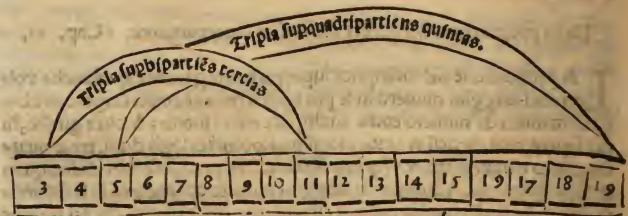 Tripla supquadripartiens quintas.
Tripla supbipartiẽs tercias
3 4 5 6 7 8 9 10 11 12 13 14 15 19 17 18 19